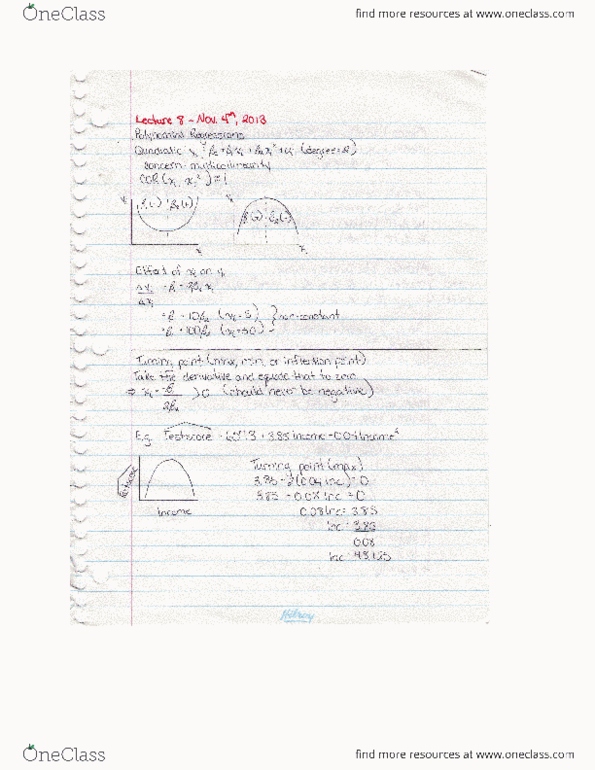 OneClass
find more resources at www.oneclass.com
Lecture 8 - Nov. 4th, 2013
Polynomial Regressions
Quadratic (degree=2)
concern: multicollinearity
COR(xi, xi²)=1
xi
Effect of xi on yi
Δyi
Δxi
(xi=5)
(xi=50)
non-constant
Turning point (max, min, or inflection point)
Take the derivative and equate that to zero
>0 (should never be negative)
E.g. Testscore = 607.3 + 3.85 Income - 0.04 Income²
Testscore
Income
Turning point (max)
3.85 - 2(0.04 inc) = 0
3.85 - 0.08 inc = 0
0.08 inc = 3.85
inc = 3.85
0.08
inc = 48.125
Hilroy
OneClass
find more resources at www.oneclass.com